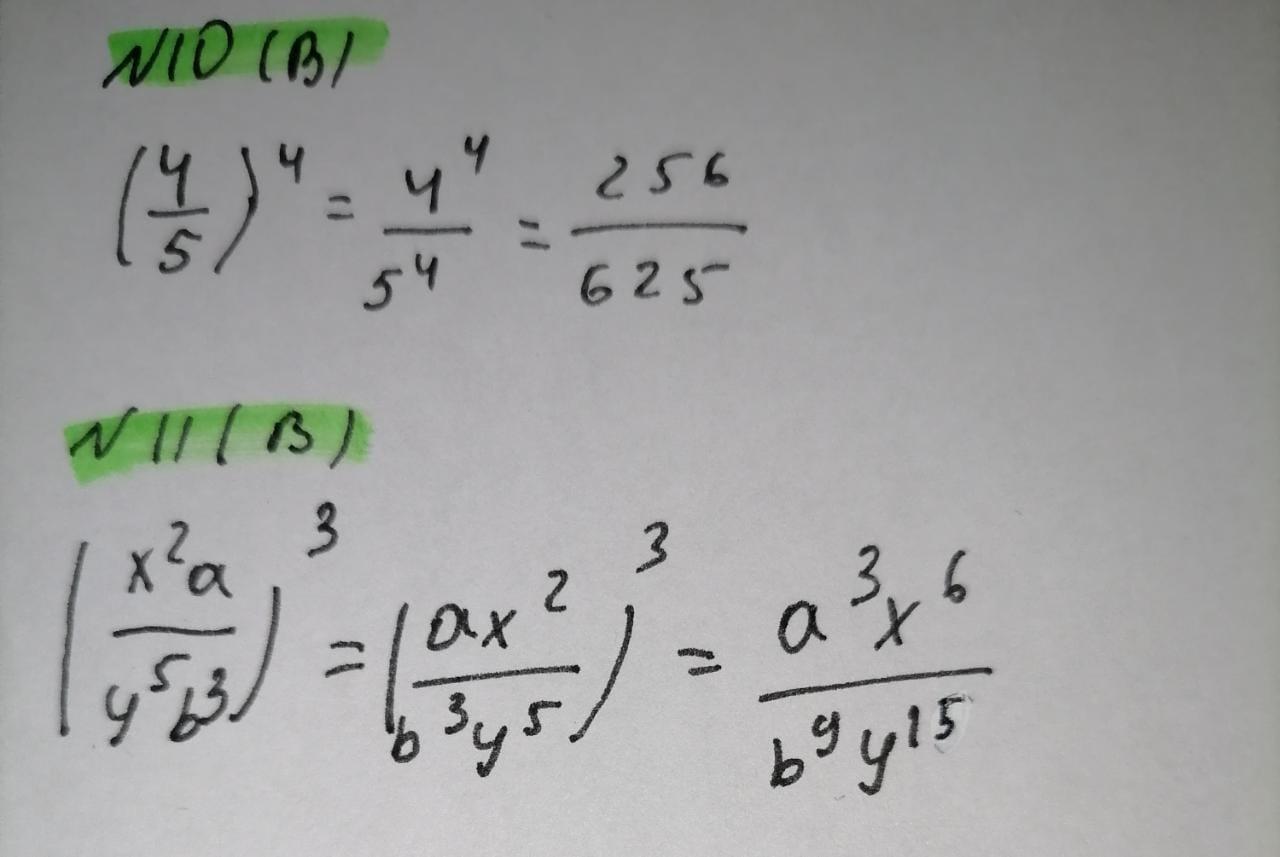 N10 (В)
(4/5)^4 = 4^4/5^4 = 256/625
N11 (В)
(x^2a/y^5b^3)^3 = (ax^2/b^3y^5)^3 = a^3x^6/b^9y^15